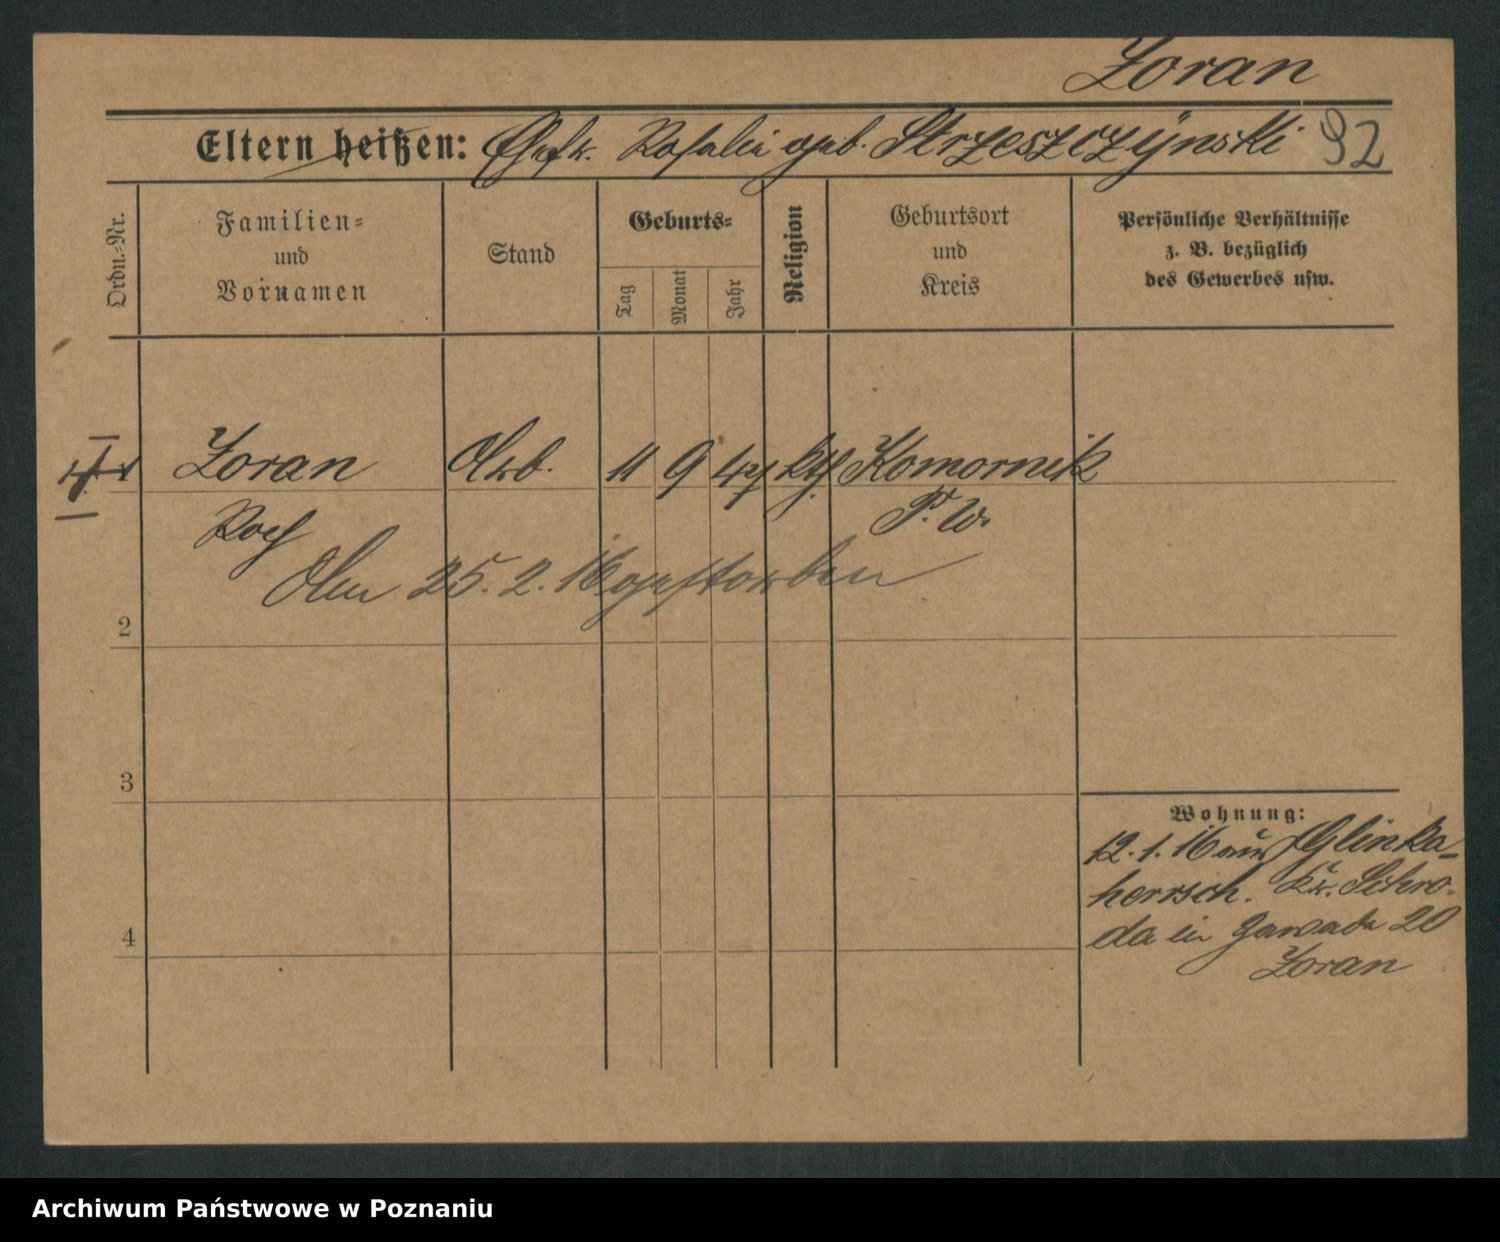 Zoran
Eltern heißen: Ehefr. Rosalie geb. Strzeszczÿnski 92
Ordn.-Nr.
Familien-
und
Vornamen
Stand
Geburts-
Tag
Monat
Jahr
Religion
Geburtsort
und
Kreis
Persönliche Verhältnisse
z. B. bezüglich
des Gewerbes usw.
Zoran Arb. 11 9 47 kth Komornik
Roch P. W.
Am 25. 2. 16 gestorben
2
3
4
Wohnung:
12. 1. 16 aus Glinka-
herrsch. Kr. Schro-
da in Zawada 20
Zoran
Archiwum Państwowe w Poznaniu